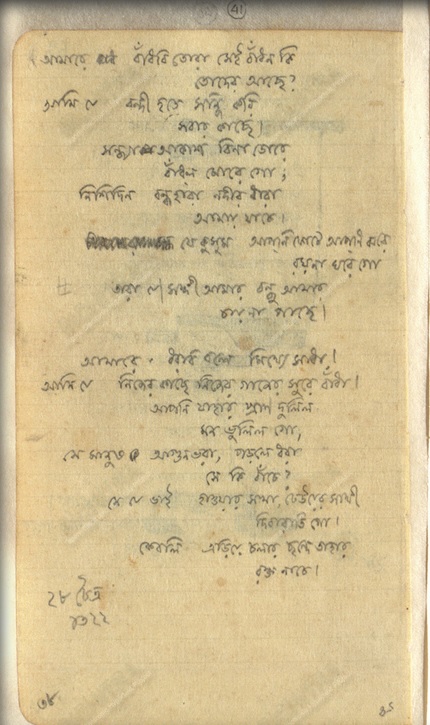 41
আমারে বাঁধবি তোরা সেই বাঁধন কি
তোদের আছে?
আমি যে বন্দী হতে সন্ধি করি
সবার কাছে।
সন্ধ্যা আকাশ বিনা ডোরে
বাঁধল মোরে গো;
নিশিদিন বন্ধহারা নদীর ধারা
আমায় যাচে।
যে কুসুম আপনি ফোটে আপনি ঝরে
রয়না ঘরে গো
তারা যে সঙ্গী আমার বন্ধু আমার
চায় না পাছে।
আমারে ধরবি বলে মিথ্যে সাধা।
আমি যে নিজের কাছে নিজের গানের সুরে বাঁধা।
আপনি যাহার প্রাণ দুলিল
মন ভুলিল গো,
সে মানুষ আগুনভরা, পড়লে ধরা
সে কি বাঁচে?
সে যে ভাই হাওয়ার সখা, ঢেউয়ের সাথী
দিবারাতি গো।
কেবলি এড়িয়ে চলার ছন্দে তাহার
রক্ত নাচে।
২৮ চৈত্র
১৩২২